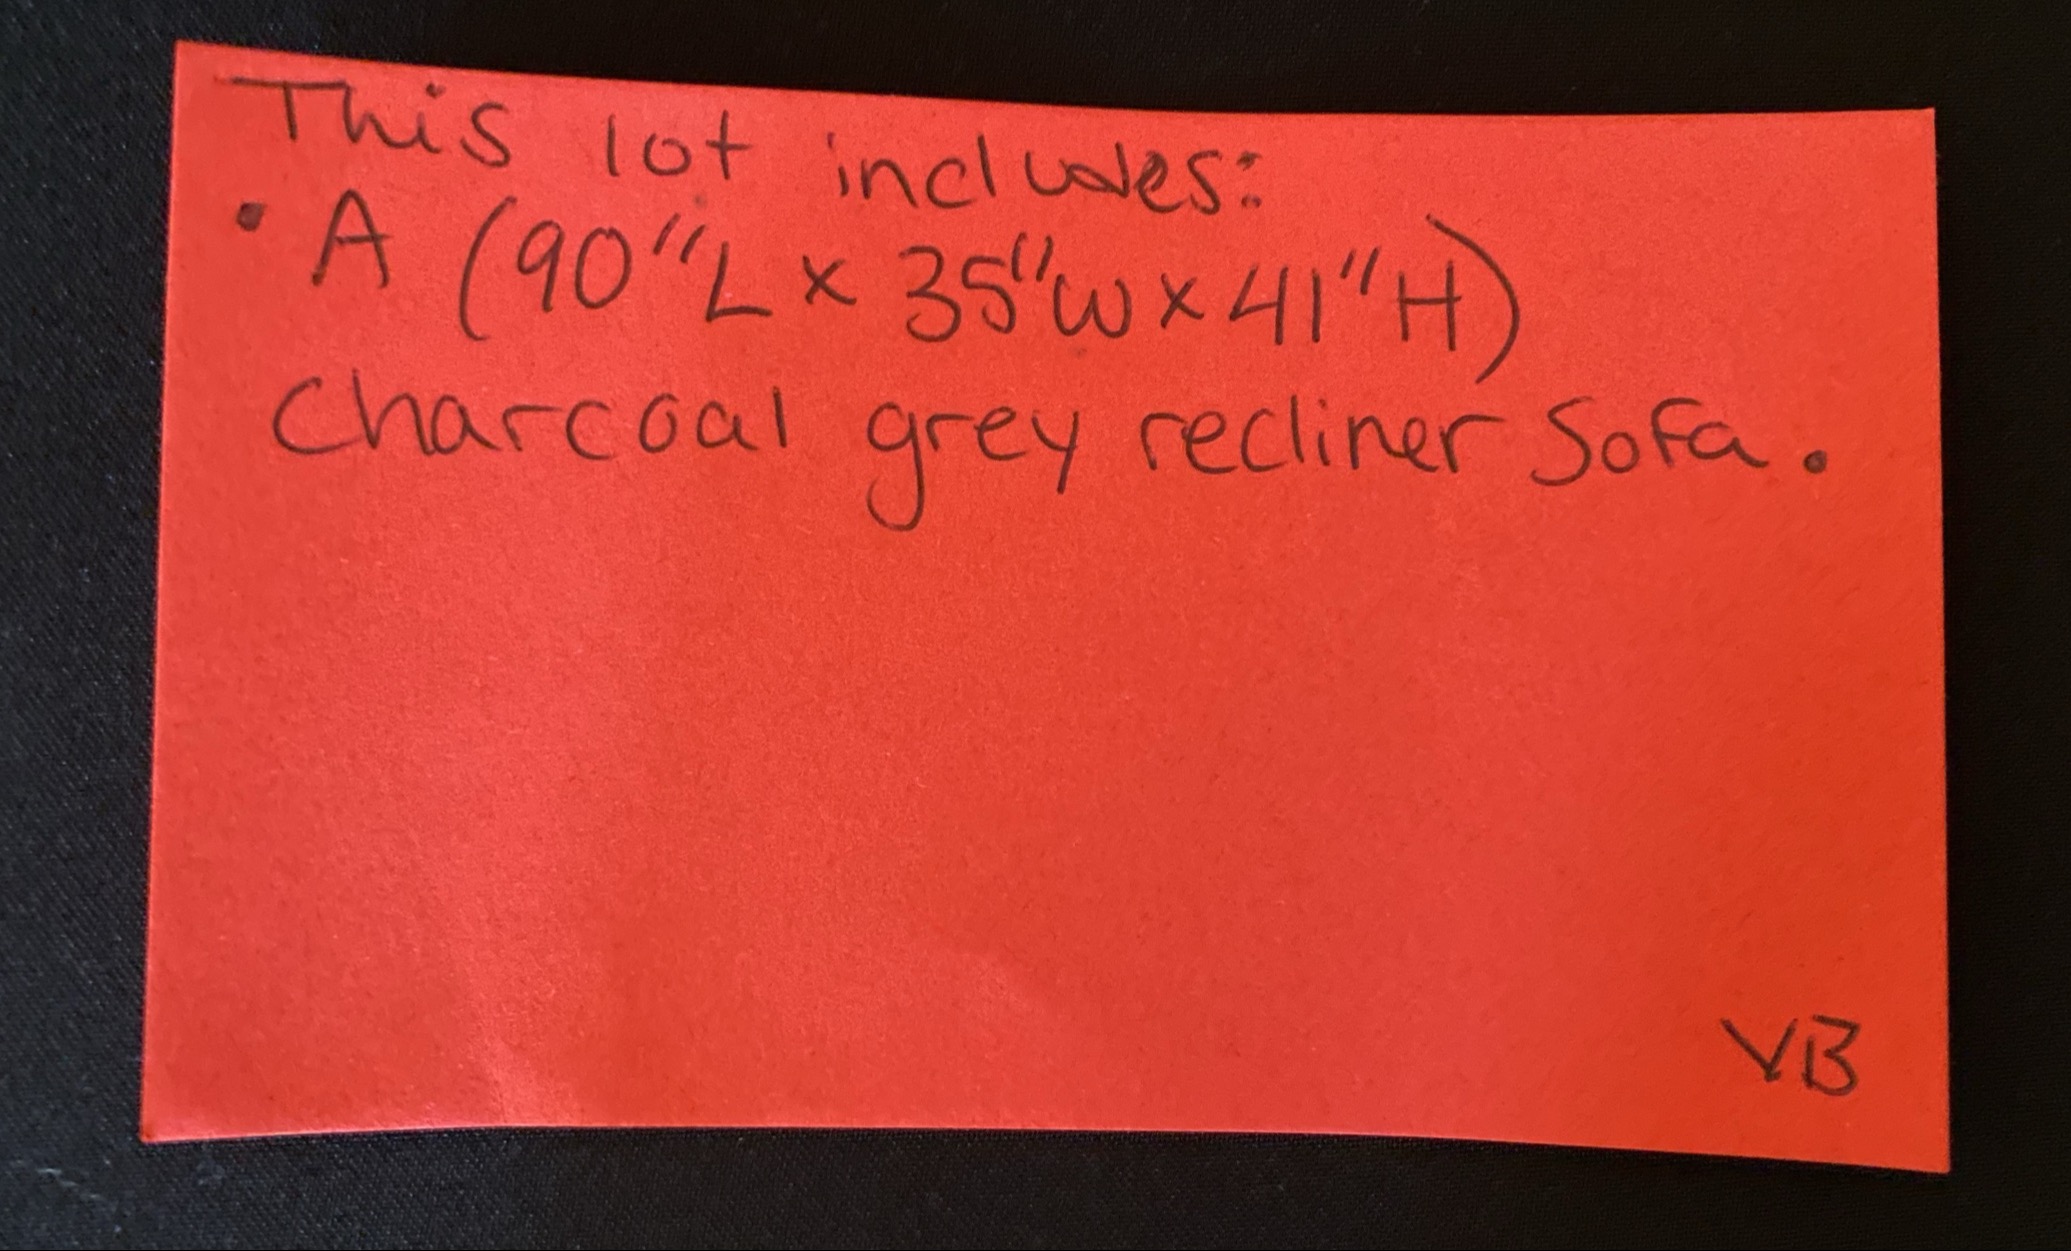 This lot includes:
• A (90"L x 35"W x 41"H)
charcoal grey recliner sofa.
VB